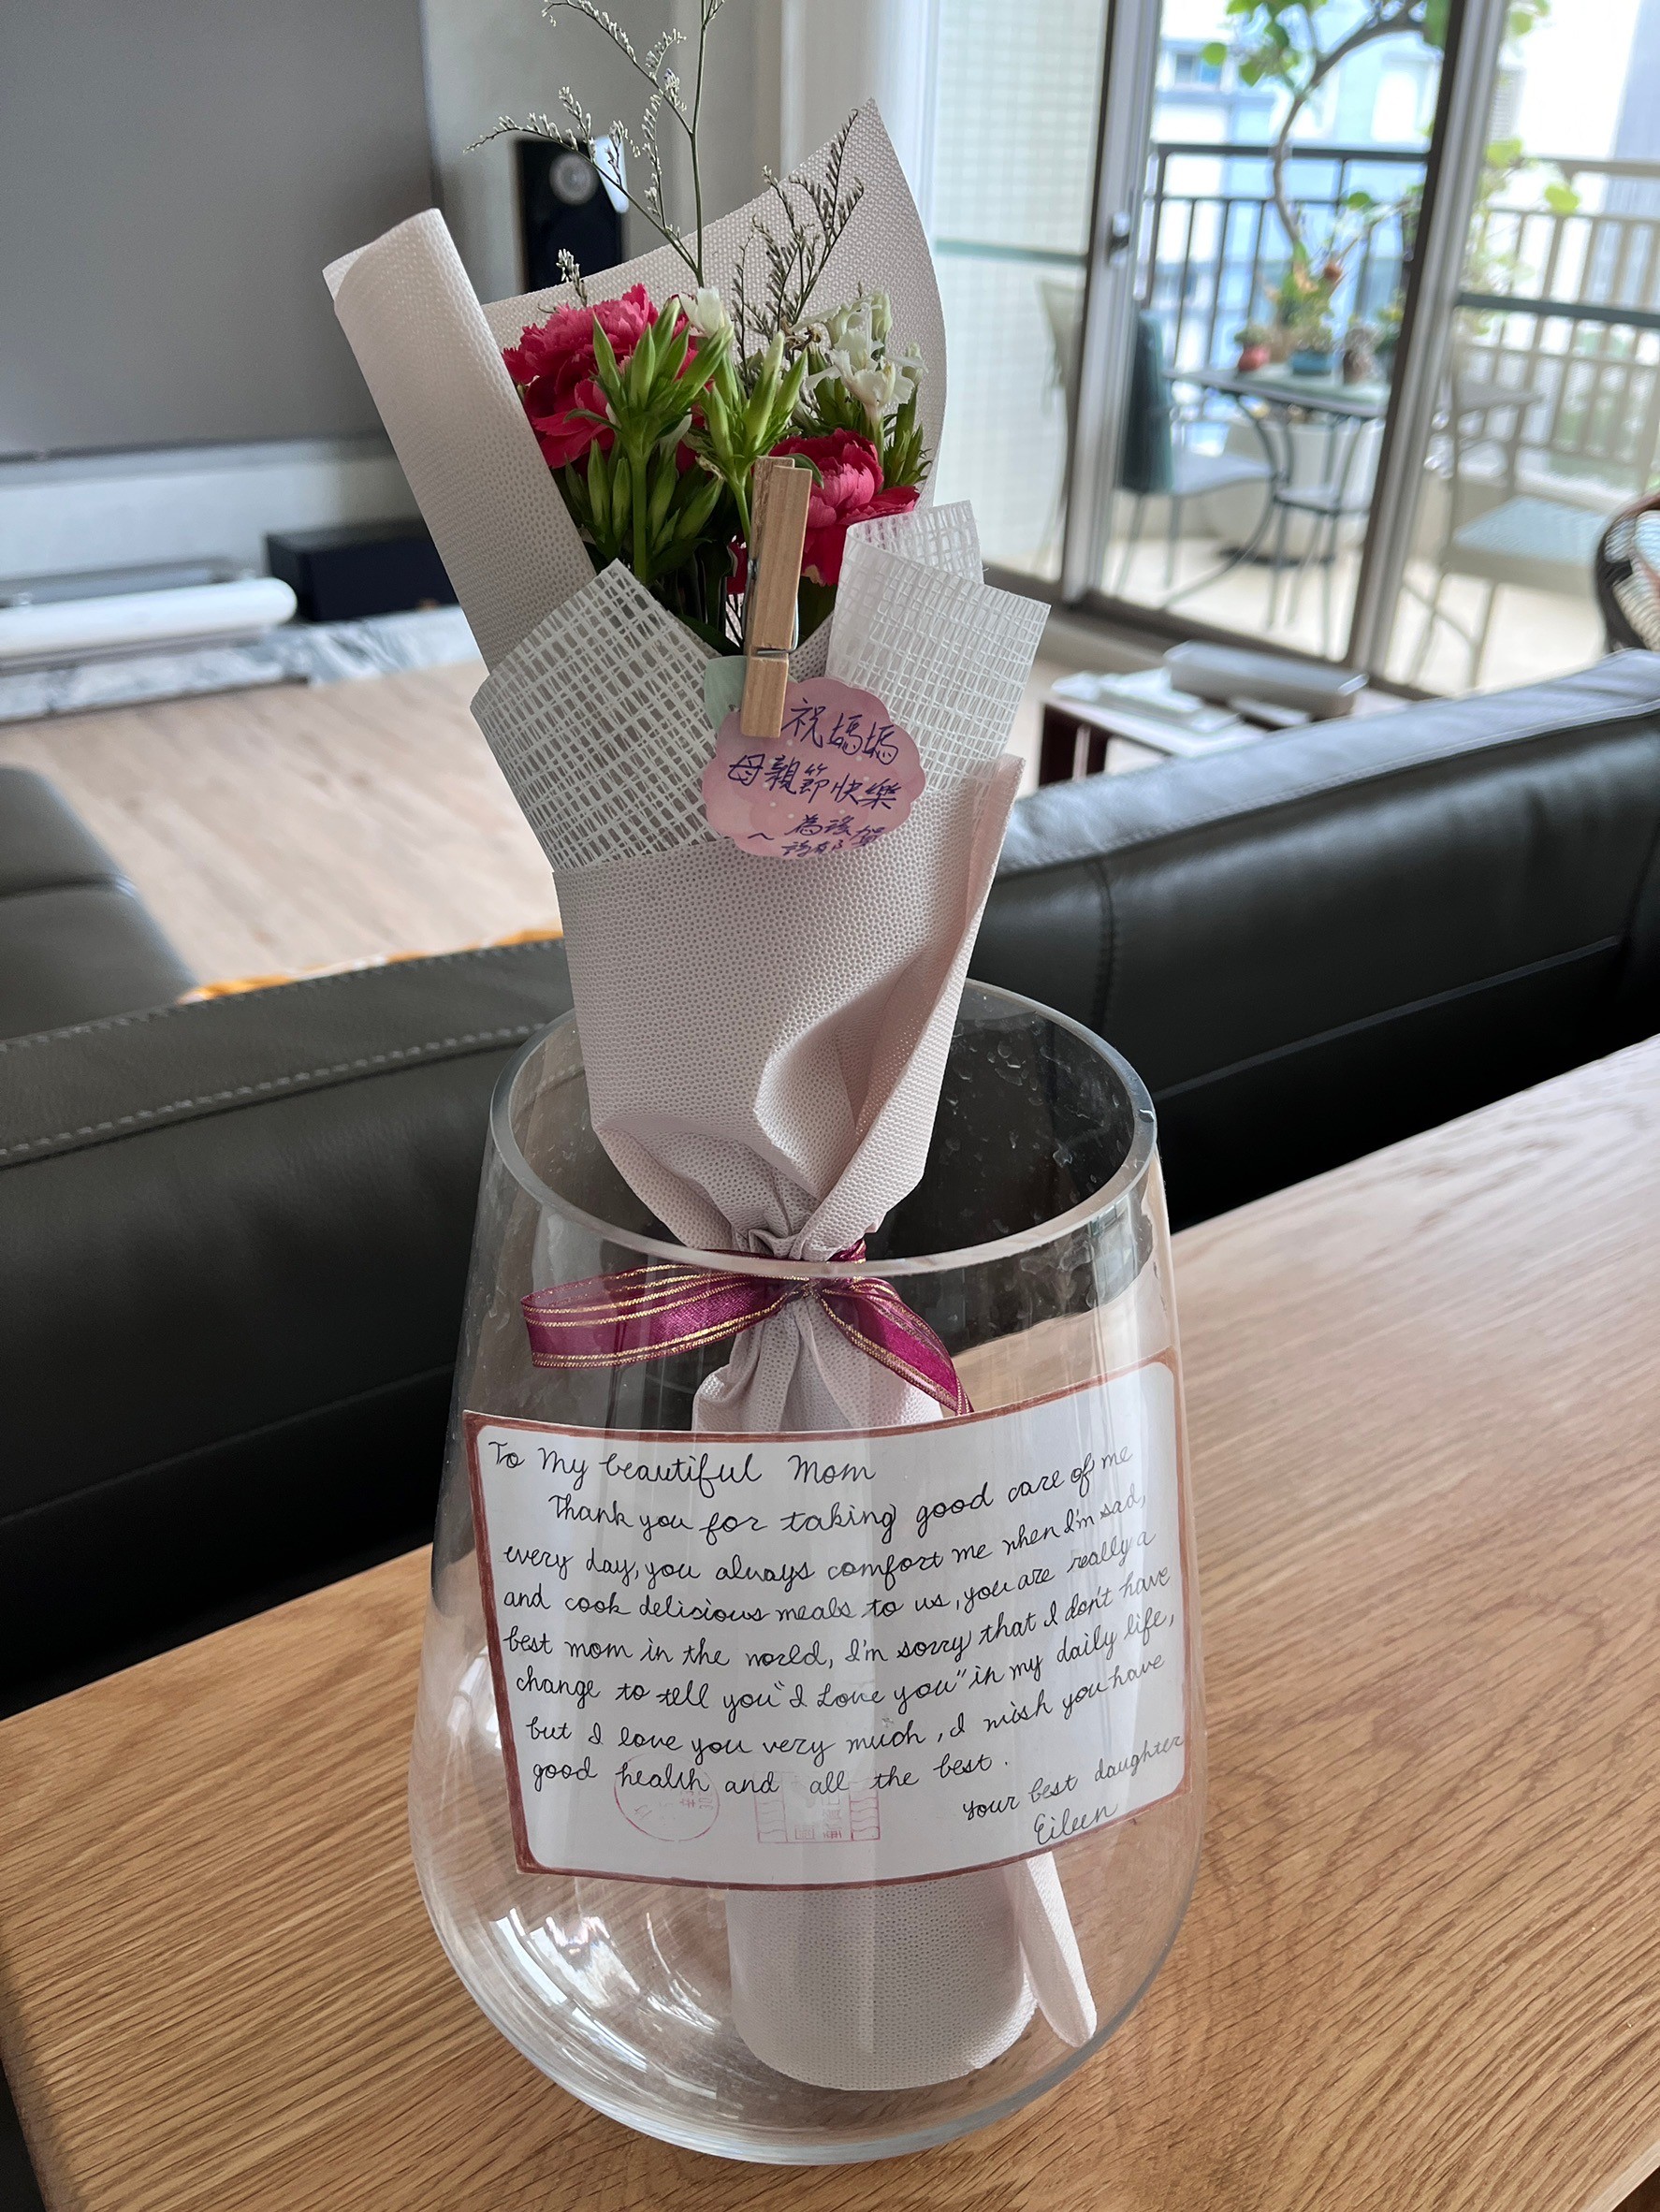 祝媽媽
母親節快樂
~
To My beautiful Mom
Thank you for taking good care of me
every day, you always comfort me when I'm sad,
and cook delicious meals to us, you are really a
best mom in the world, I'm sorry that I don't have
change to tell you "I Love you" in my daily life,
but I love you very much, I wish you have
good health and all the best.
your best daughter
Eileen